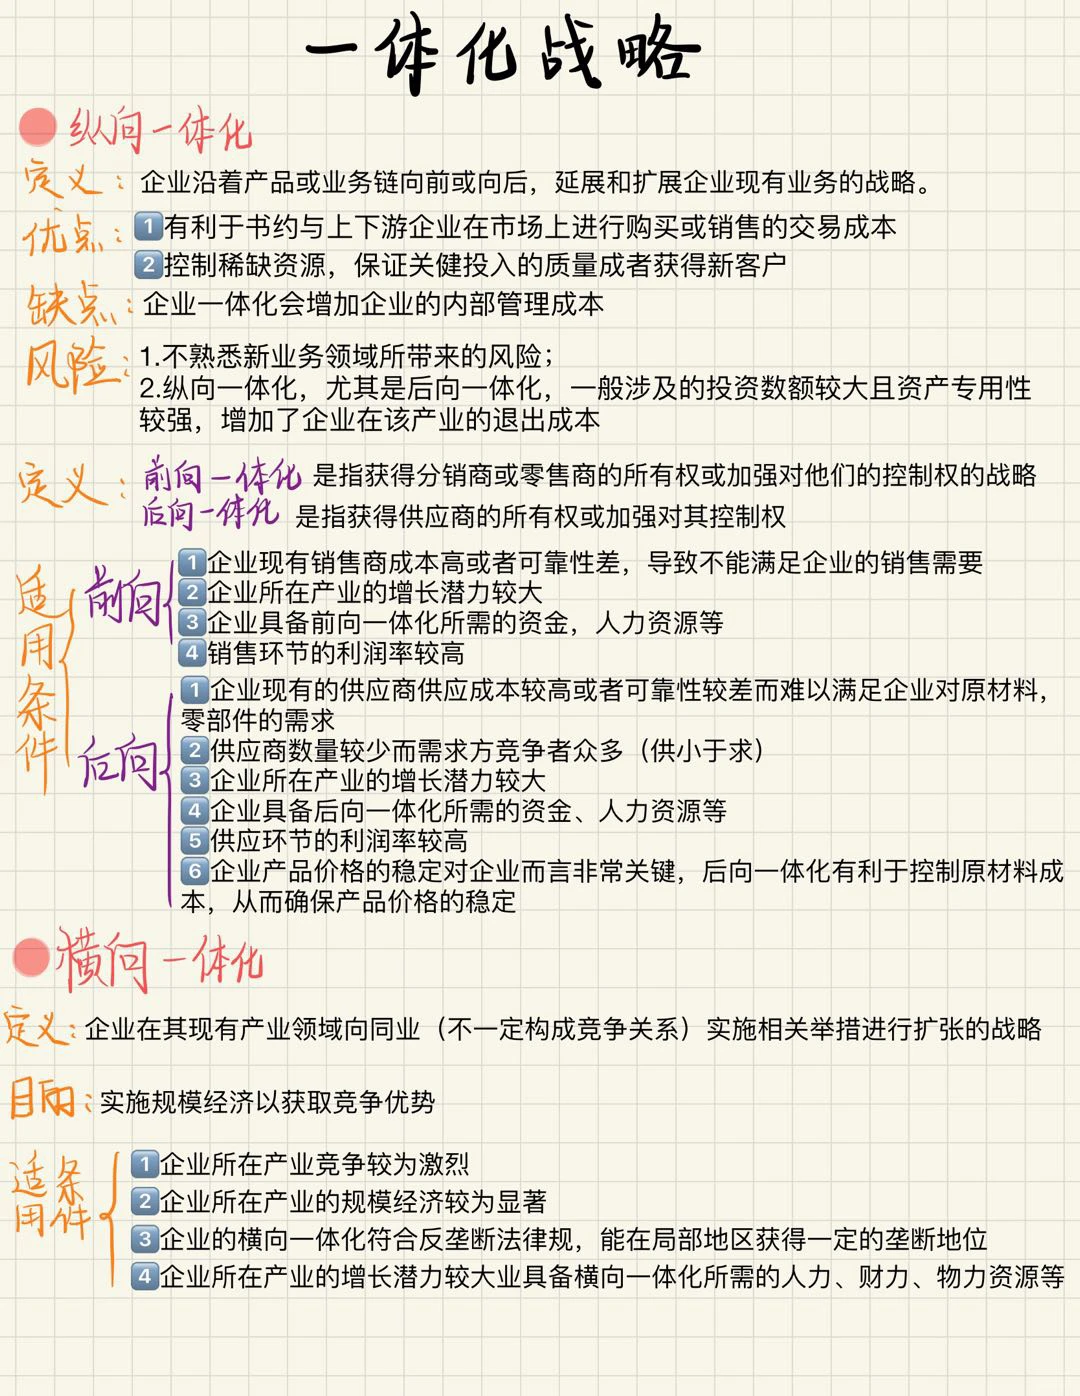 一体化战略
纵向一体化
定义：企业沿着产品或业务链向前或向后，延展和扩展企业现有业务的战略。
优点：1有利于书约与上下游企业在市场上进行购买或销售的交易成本
2控制稀缺资源，保证关健投入的质量成者获得新客户
缺点：企业一体化会增加企业的内部管理成本
风险：1.不熟悉新业务领域所带来的风险；
2.纵向一体化，尤其是后向一体化，一般涉及的投资数额较大且资产专用性
较强，增加了企业在该产业的退出成本
定义：前向一体化 是指获得分销商或零售商的所有权或加强对他们的控制权的战略
后向一体化 是指获得供应商的所有权或加强对其控制权
适用条件
前向
1企业现有销售商成本高或者可靠性差，导致不能满足企业的销售需要
2企业所在产业的增长潜力较大
3企业具备前向一体化所需的资金，人力资源等
4销售环节的利润率较高
后向
1企业现有的供应商供应成本较高或者可靠性较差而难以满足企业对原材料，
零部件的需求
2供应商数量较少而需求方竞争者众多（供小于求）
3企业所在产业的增长潜力较大
4企业具备后向一体化所需的资金、人力资源等
5供应环节的利润率较高
6企业产品价格的稳定对企业而言非常关键，后向一体化有利于控制原材料成
本，从而确保产品价格的稳定
横向一体化
定义：企业在其现有产业领域向同业（不一定构成竞争关系）实施相关举措进行扩张的战略
目的：实施规模经济以获取竞争优势
适用条件
1企业所在产业竞争较为激烈
2企业所在产业的规模经济较为显著
3企业的横向一体化符合反垄断法律规，能在局部地区获得一定的垄断地位
4企业所在产业的增长潜力较大业具备横向一体化所需的人力、财力、物力资源等